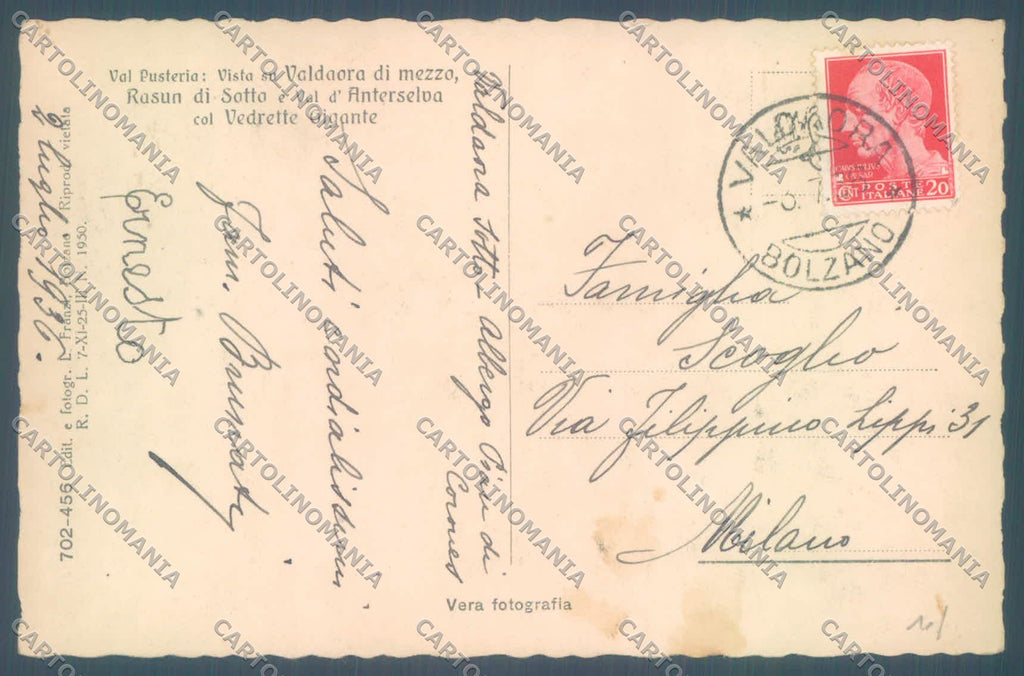 Val Pusteria: Vista su Valdaora di mezzo,
Rasun di Sotto e Val d' Anterselva
col Vedrette Gigante
Valdaora Sotto Albergo di
Corones
Saluti cordialissimi
Fam. Brunati
Ernesto
2 luglio 1936.
702-456 Edit. e fotogr. L. Fränzl, Bolzano Riproduz. vietata
R. D. L. 7-XI-25-III N. 1950.
Vera fotografia
VALDAORA
BOLZANO
POSTE
ITALIANE
CENT 20
Famiglia
Scoglio
Via Filippino Lippi 31
Milano
CARTOLINOMANIA